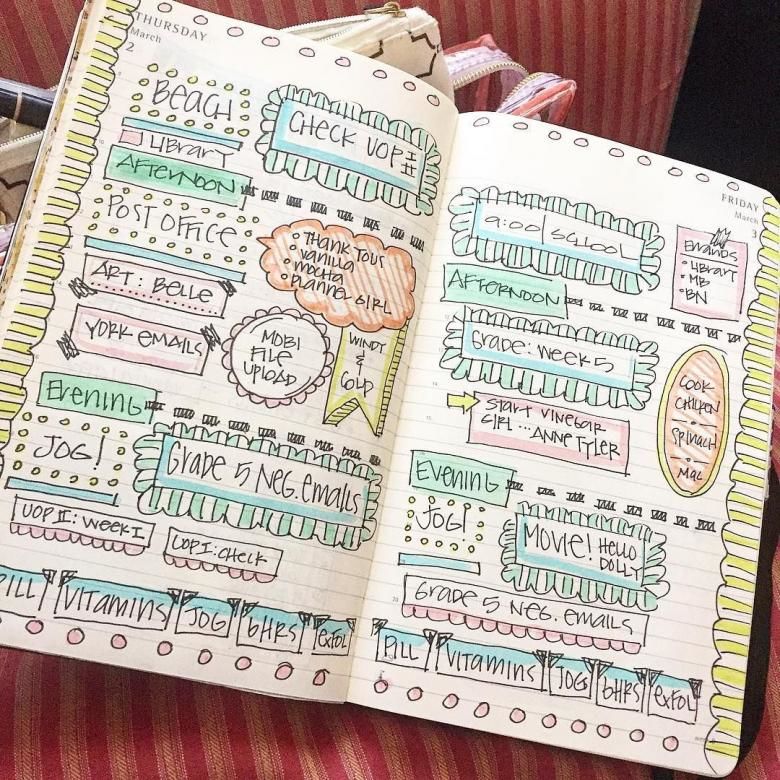 THURSDAY
March
2
BEACH
CHECK UOP I
II
LIBRARY
AFTERNOON
POST OFFICE
THANK YOUS
• VANILLA
• MOCHA
• PLANNER GIRL
ART: BELLE
YORK EMAILS
MOBI
FILE
UPLOAD
WINDY
&
COLD
Evening
JOG!
GRADE 5 NEG. EMAILS
UOP II: WEEK I
UOP I: CHECK
PILL
VITAMINS
JOG
6HRS
EXFOL
FRIDAY
March
3
9:00 SCHOOL
ERRANDS
• LIBRARY
• MB
• BN
AFTERNOON
GRADE: WEEK 5
START VINEGAR
GIRL ... ANNE TYLER
COOK
CHICKEN
•
SPINACH
•
MAC
Evening
JOG!
MOVIE! HELLO
DOLLY
GRADE 5 NEG. EMAILS
PILL
VITAMINS
JOG
6HRS
EXFOL